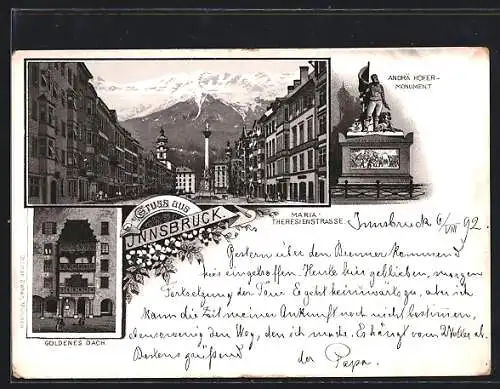 ANDRÄ HOFER-
MONUMENT
Gruss aus
INNSBRUCK.
MARIA
THERESIENSTRASSE.
GOLDENES DACH.
Innsbruck 6/VIII 92.
Gestern über den Brenner kommend
hier eingetroffen. Heute hier geblieben, morgen
Fortsetzung der Tour. Es geht heimwärts zu, aber ich
kann die Zeit meiner Ankunft noch nicht bestimmen,
ebensowenig den Weg, den ich mache. Es hängt vom Wetter ab.
Bestens grüßend
der Papa.